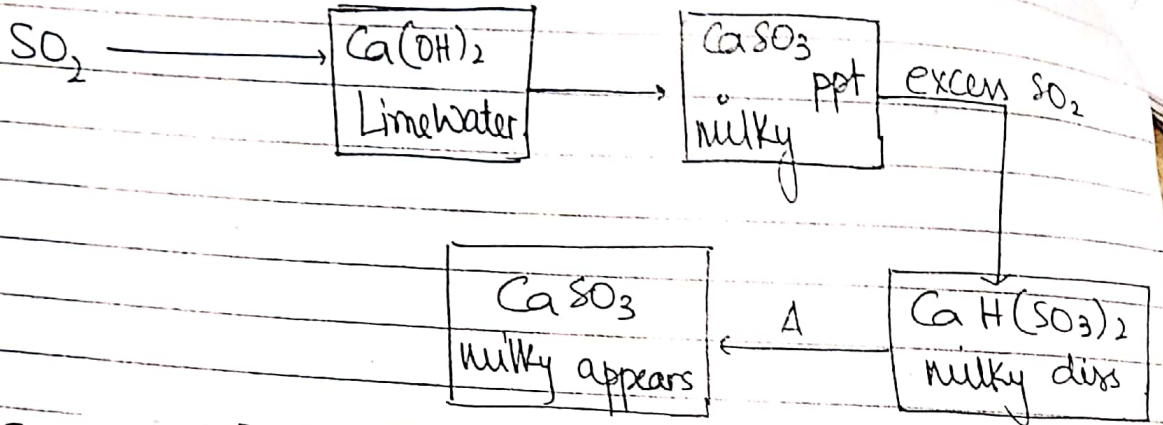 SO₂ → Ca(OH)₂
Limewater
CaSO₃
ppt
milky
excess SO₂
CaH(SO₃)₂
milky diss
Δ
CaSO₃
milky appears